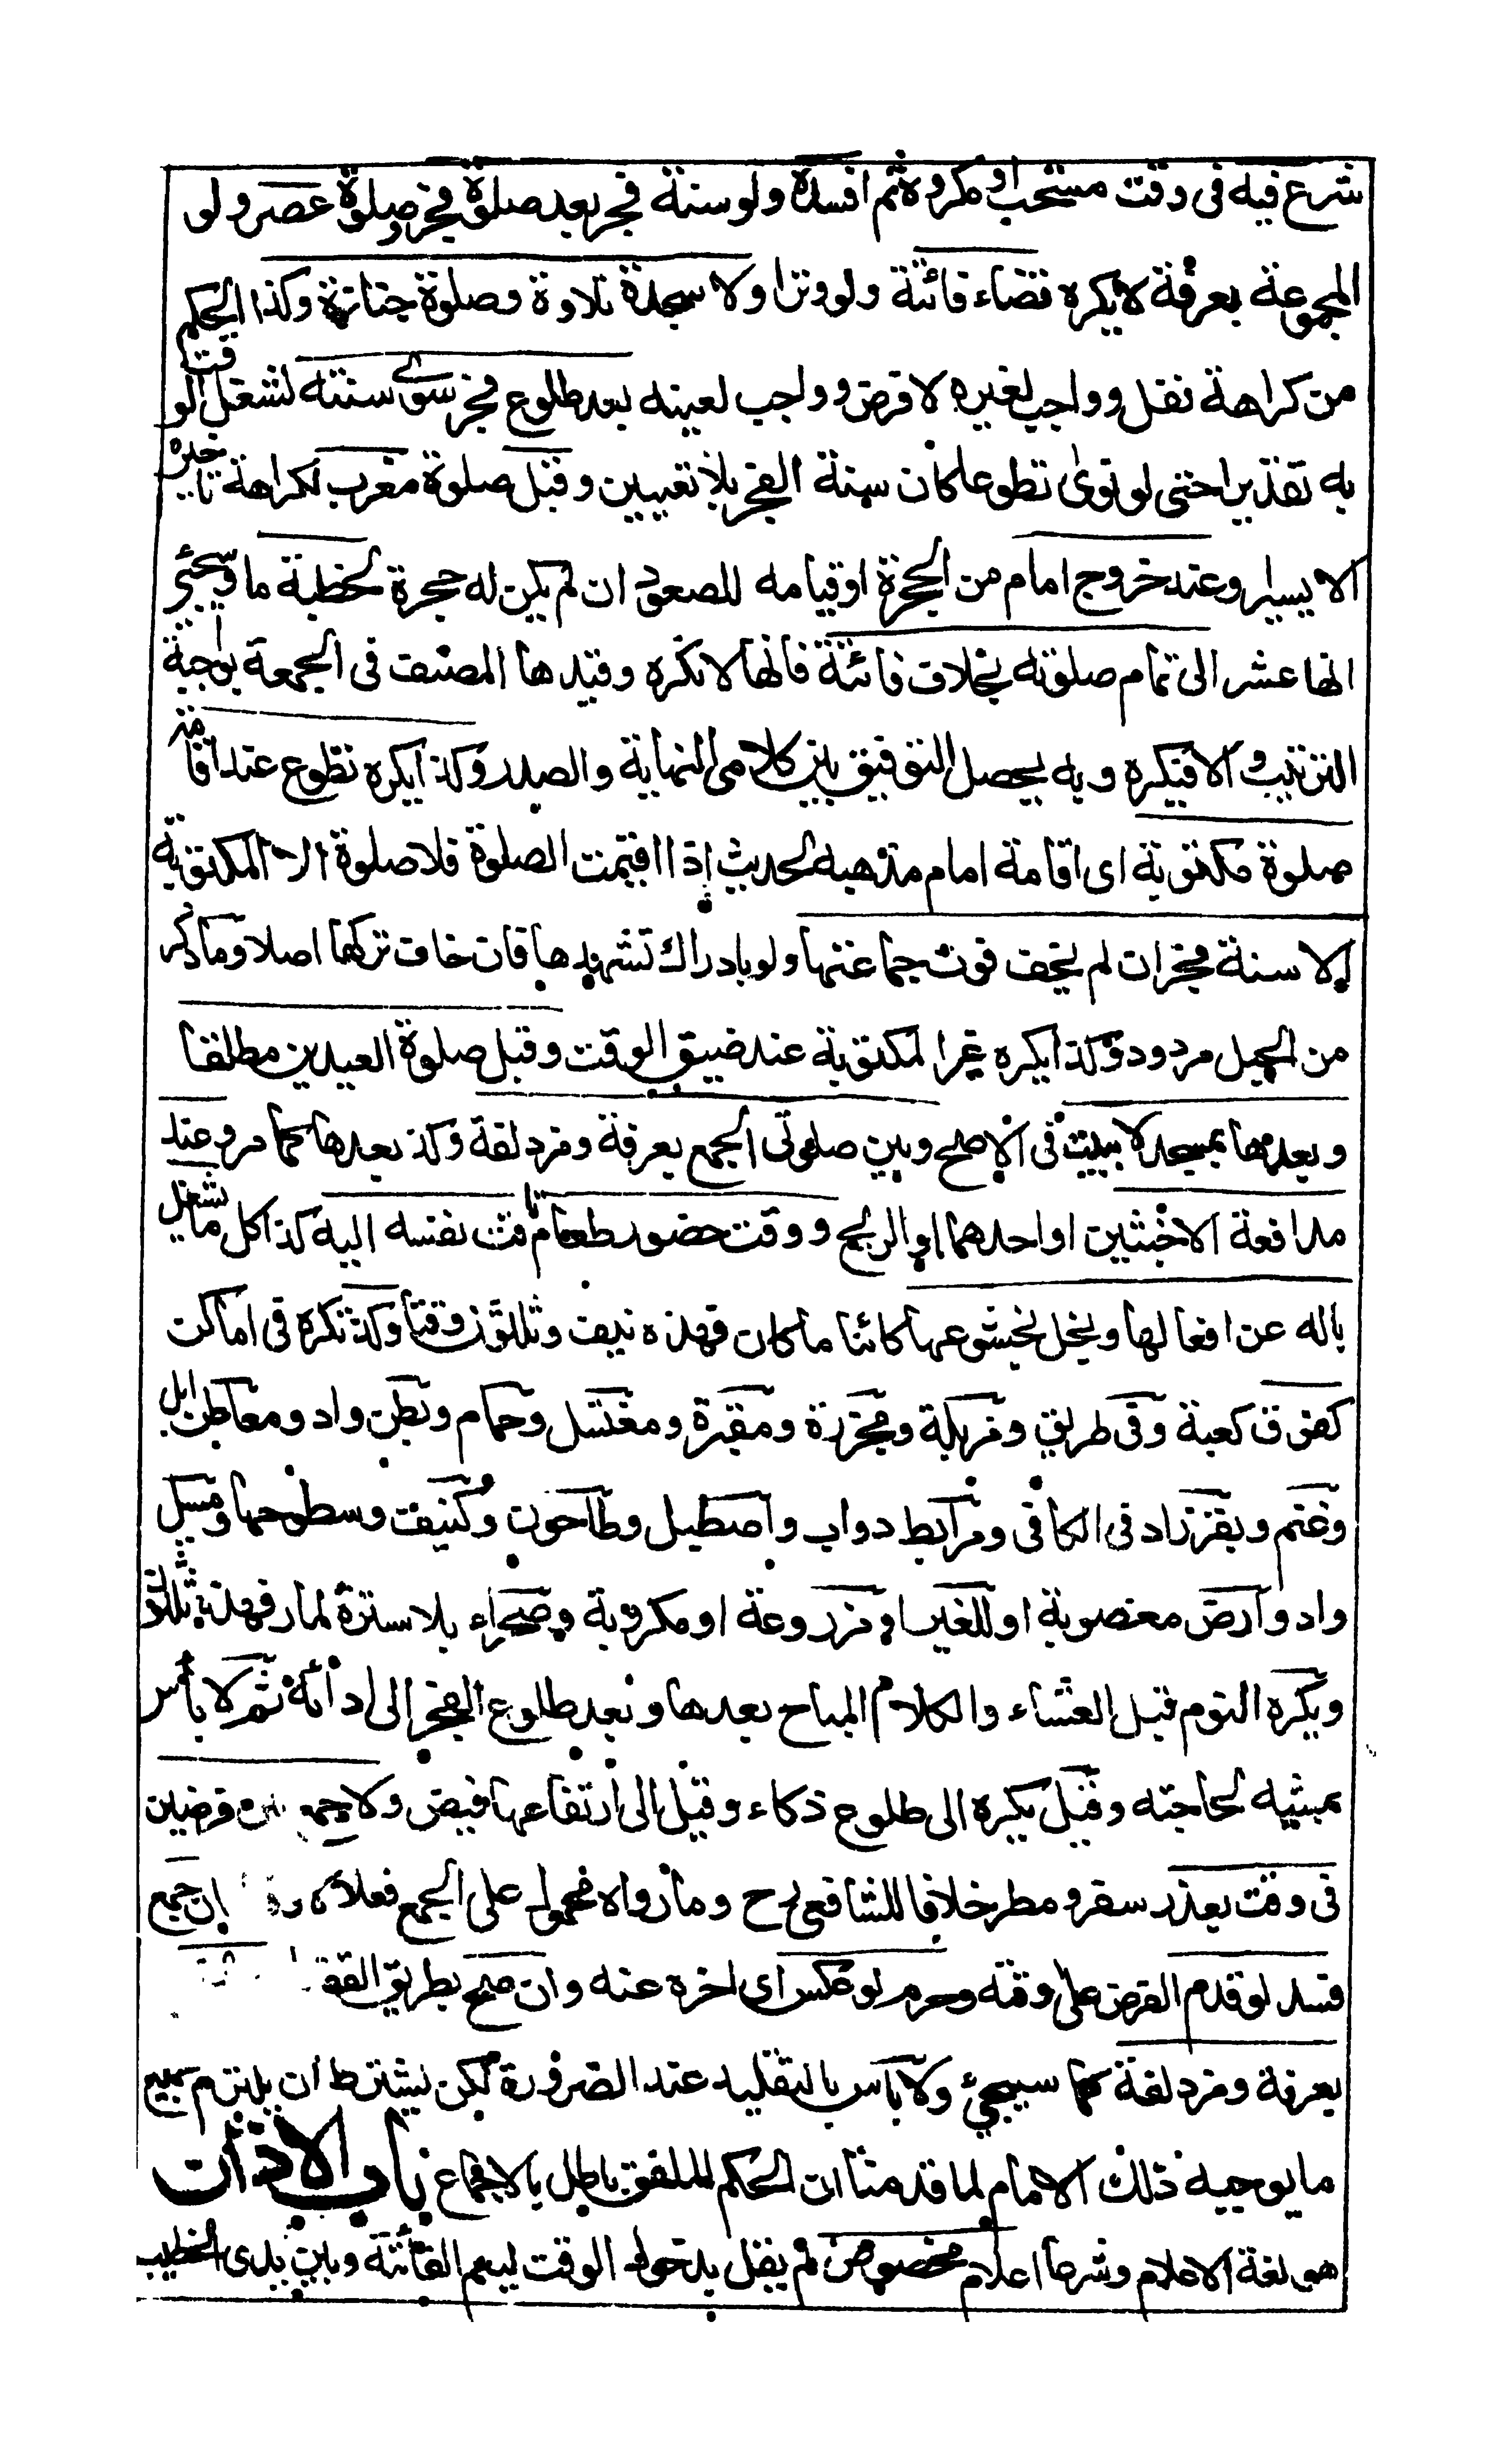 شرع فيه فى وقت مستحب او مكروه ثم افسده ولو سنة فجر بعد صلوة فجر وصلوة عصر ولو
المجموعة بعرفة لا يكره قضاء فائتة ولو وترا ولا سجدة تلاوة وصلوة جنازة وكذا الحكم
من كراهة نفل وواجب لغيره لا فرض وواجب لعينه بعد طلوع فجر سوى سنته لشغل الوقت
به تقديرا حتى لو نوى تطوعا كان سنة الفجر بلا تعيين وقبل صلوة مغرب لكراهة تاخيره
الا يسيرا وعند خروج امام من الحجرة او قيامه للصعود ان لم يكن له حجرة لخطبة ما وسيجئ
انها عشر الى تمام صلوته بخلاف فائتة فانها لا تكره وقيدها المصنف فى الجمعة بواجبة
الترتيب والا فيكره وبه يحصل التوفيق بين كلامى النهاية والصدر وكذا يكره تطوع عند اقامة
صلوة مكتوبة اى اقامة امام مذهبه لحديث اذا اقيمت الصلوة فلا صلوة الا المكتوبة
الا سنة فجر ان لم يخف فوت جماعتها ولو بادراك تشهدها فان خاف تركها اصلا وما ذكر
من الحيل مردود وكذا يكره غير المكتوبة عند ضيق الوقت وقبل صلوة العيدين مطلقا
وبعدها بمسجد لا ببيت فى الاصح وبين صلوتى الجمع بعرفة ومزدلفة وكذا بعدها كما مر وعند
مدافعة الاخبثين او احدهما او الريح ووقت حضور طعام تاقت نفسه اليه كذا كل ما يشغل
باله عن افعالها ويخل بخشوعها كائنا ما كان فهذه نيف وثلثون وقتا وكذا تكره فى اماكن
كفوق كعبة وفى طريق ومزبلة ومجزرة ومقبرة ومغتسل وحمام وبطن واد ومعاطن ابل
وغنم وبقر زاد فى الكافى ومرابط دواب واصطبل وطاحون وكنيف وسطوحها ومسيل
واد وارض مغصوبة او للغير او مزروعة او مكروبة وصحراء بلا سترة لمار فهذه ثلثون
ويكره النوم قبل العشاء والكلام المباح بعدها وبعد طلوع الفجر الى ادائه ثم لا بأس
بمشيه لحاجته وقيل يكره الى طلوع ذكاء وقيل الى ارتفاعها فيض ولا جمع بين فرضين
فى وقت بعذر سفر ومطر خلافا للشافعى رح وما رواه محمول على الجمع فعلا ان جمع
فسد لو قدم الفرض على وقته وحرم لو عكس اى اخره عنه وان صح بطريق القضاء
بعرفة ومزدلفة كما سيجئ ولا بأس بالتقليد عند الضرورة لكن يشترط ان يلتزم جميع
ما يوجبه ذلك الامام لما قدمنا ان الحكم الملفق باطل بالاجماع باب الاذان
هو لغة الاعلام وشرعا اعلام مخصوص لم يقل بدخول الوقت ليعم الفائتة وبين يدى الخطيب